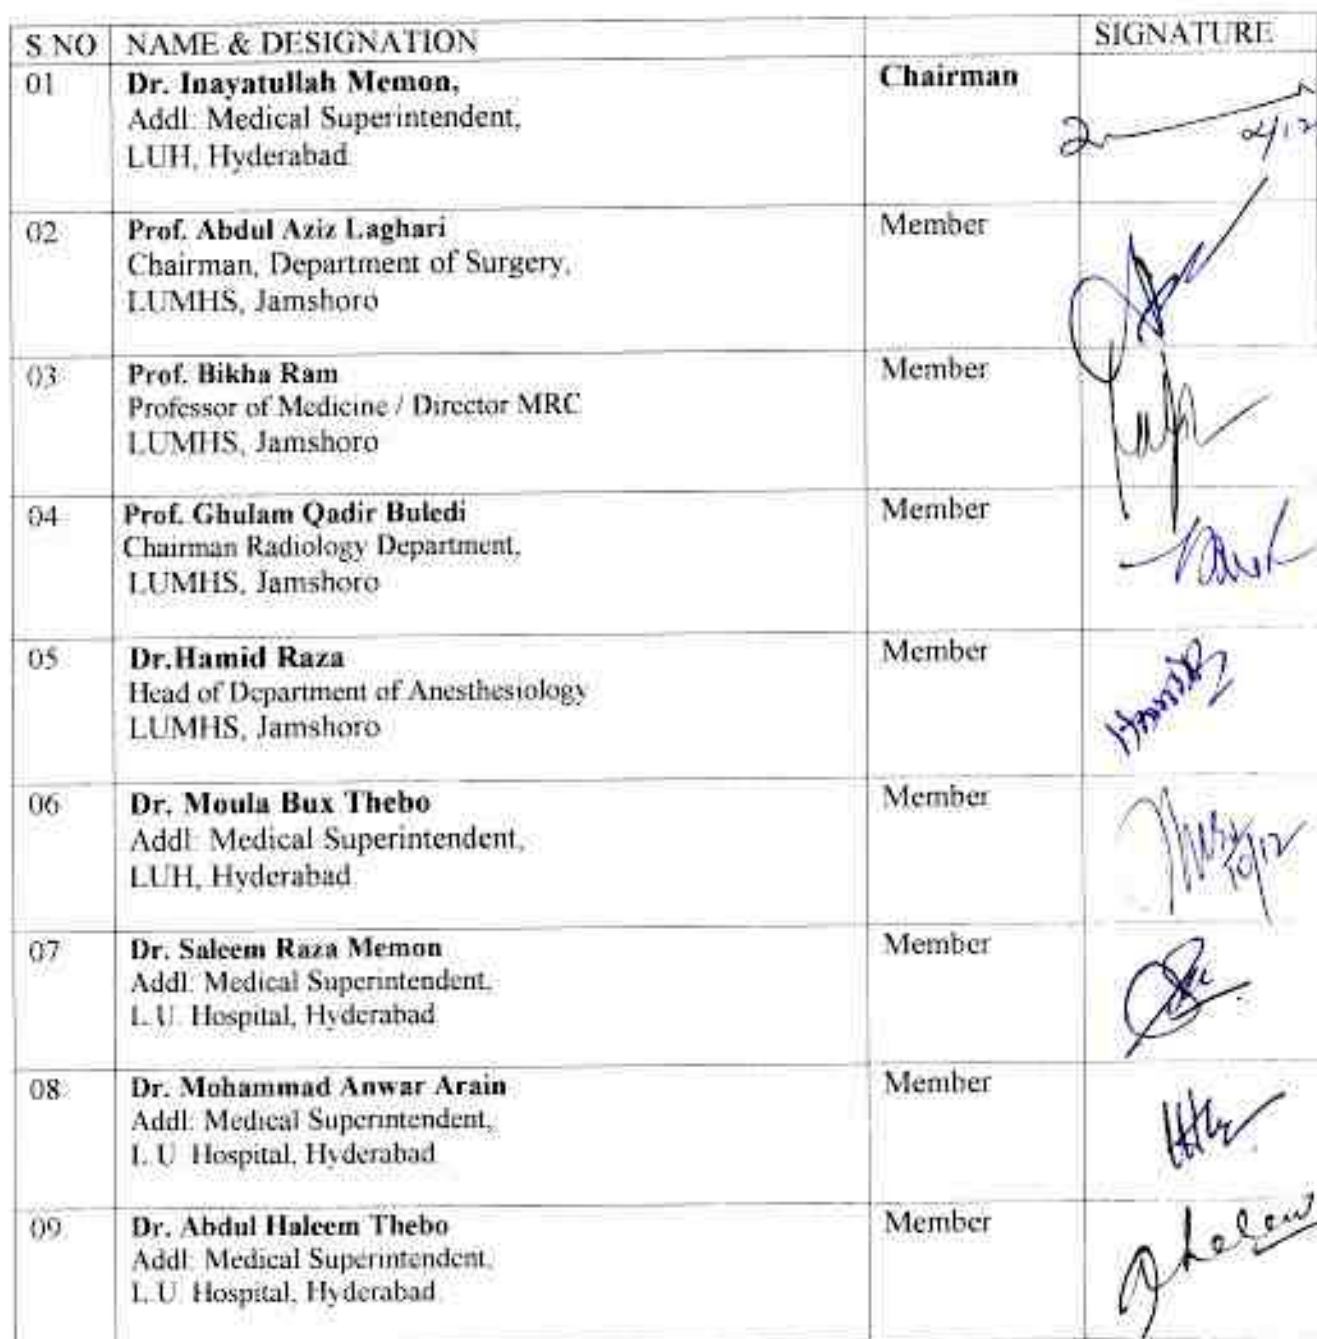 S.NO NAME & DESIGNATION SIGNATURE
01 Dr. Inayatullah Memon, Chairman
Addl: Medical Superintendent,
LUH, Hyderabad
02 Prof. Abdul Aziz Laghari Member
Chairman, Department of Surgery,
LUMHS, Jamshoro
03 Prof. Bikha Ram Member
Professor of Medicine / Director MRC
LUMHS, Jamshoro
04 Prof. Ghulam Qadir Buledi Member
Chairman Radiology Department,
LUMHS, Jamshoro
05 Dr.Hamid Raza Member
Head of Department of Anesthesiology
LUMHS, Jamshoro
06 Dr. Moula Bux Thebo Member
Addl: Medical Superintendent,
LUH, Hyderabad
10/12
07 Dr. Saleem Raza Memon Member
Addl: Medical Superintendent,
L.U. Hospital, Hyderabad
08 Dr. Mohammad Anwar Arain Member
Addl: Medical Superintendent,
L.U. Hospital, Hyderabad
09 Dr. Abdul Haleem Thebo Member
Addl: Medical Superintendent,
L.U. Hospital, Hyderabad